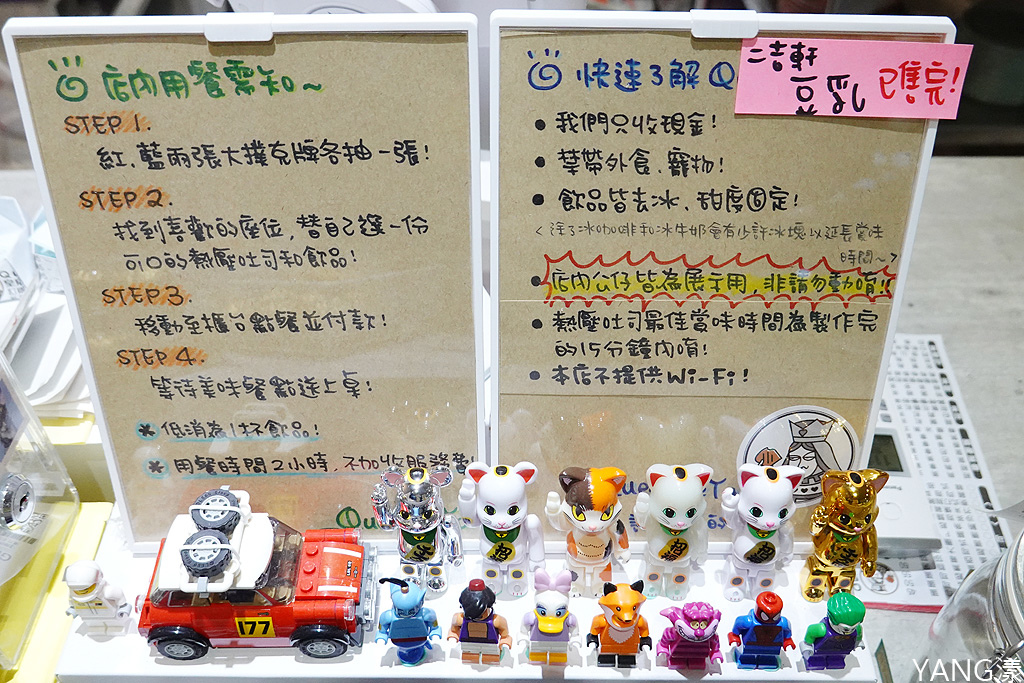 店內用餐需知~
STEP 1.
紅、藍兩張大撲克牌各抽一張!
STEP 2.
找到喜歡的座位,替自己選一份
可口的熱壓吐司和飲品!
STEP 3.
移動至櫃台點餐並付款!
STEP 4.
等待美味餐點送上桌!
* 低消為1杯飲品!
* 用餐時間2小時,不加收服務費!
Qu
快速了解 Q
二吉軒
豆乳
已售完!
• 我們只收現金!
• 禁帶外食、寵物!
• 飲品皆去冰、甜度固定!
<除了冰咖啡和冰牛奶會有少許冰塊以延長賞味
時間~>
• 店內公仔皆為展示用,非請勿動唷!
• 熱壓吐司最佳賞味時間為製作完
的15分鐘內唷!
• 本店不提供Wi-Fi!
177
YANG漾